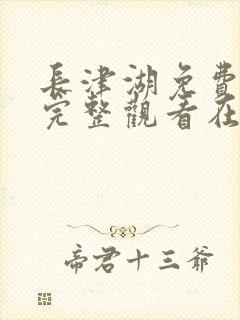 長津湖免費
完整觀看在
帝君十三爺